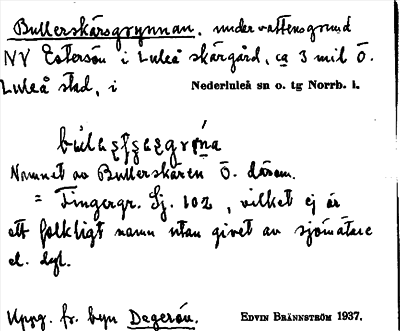 Bullerskärsgrynnan, undervattensgrund
NV Estersön i Luleå skärgård, ca 3 mil Ö.
Luleå stad, i Nederluleå sn o. tg Norrb. l.
Namnet av Bullerskären Ö. därom.
= Fingergr. Sj. 102, vilket ej är
ett folkligt namn utan givet av sjömätare
el. dyl.
Uppg. fr. byn Degerön. EDVIN BRÄNNSTRÖM 1937.